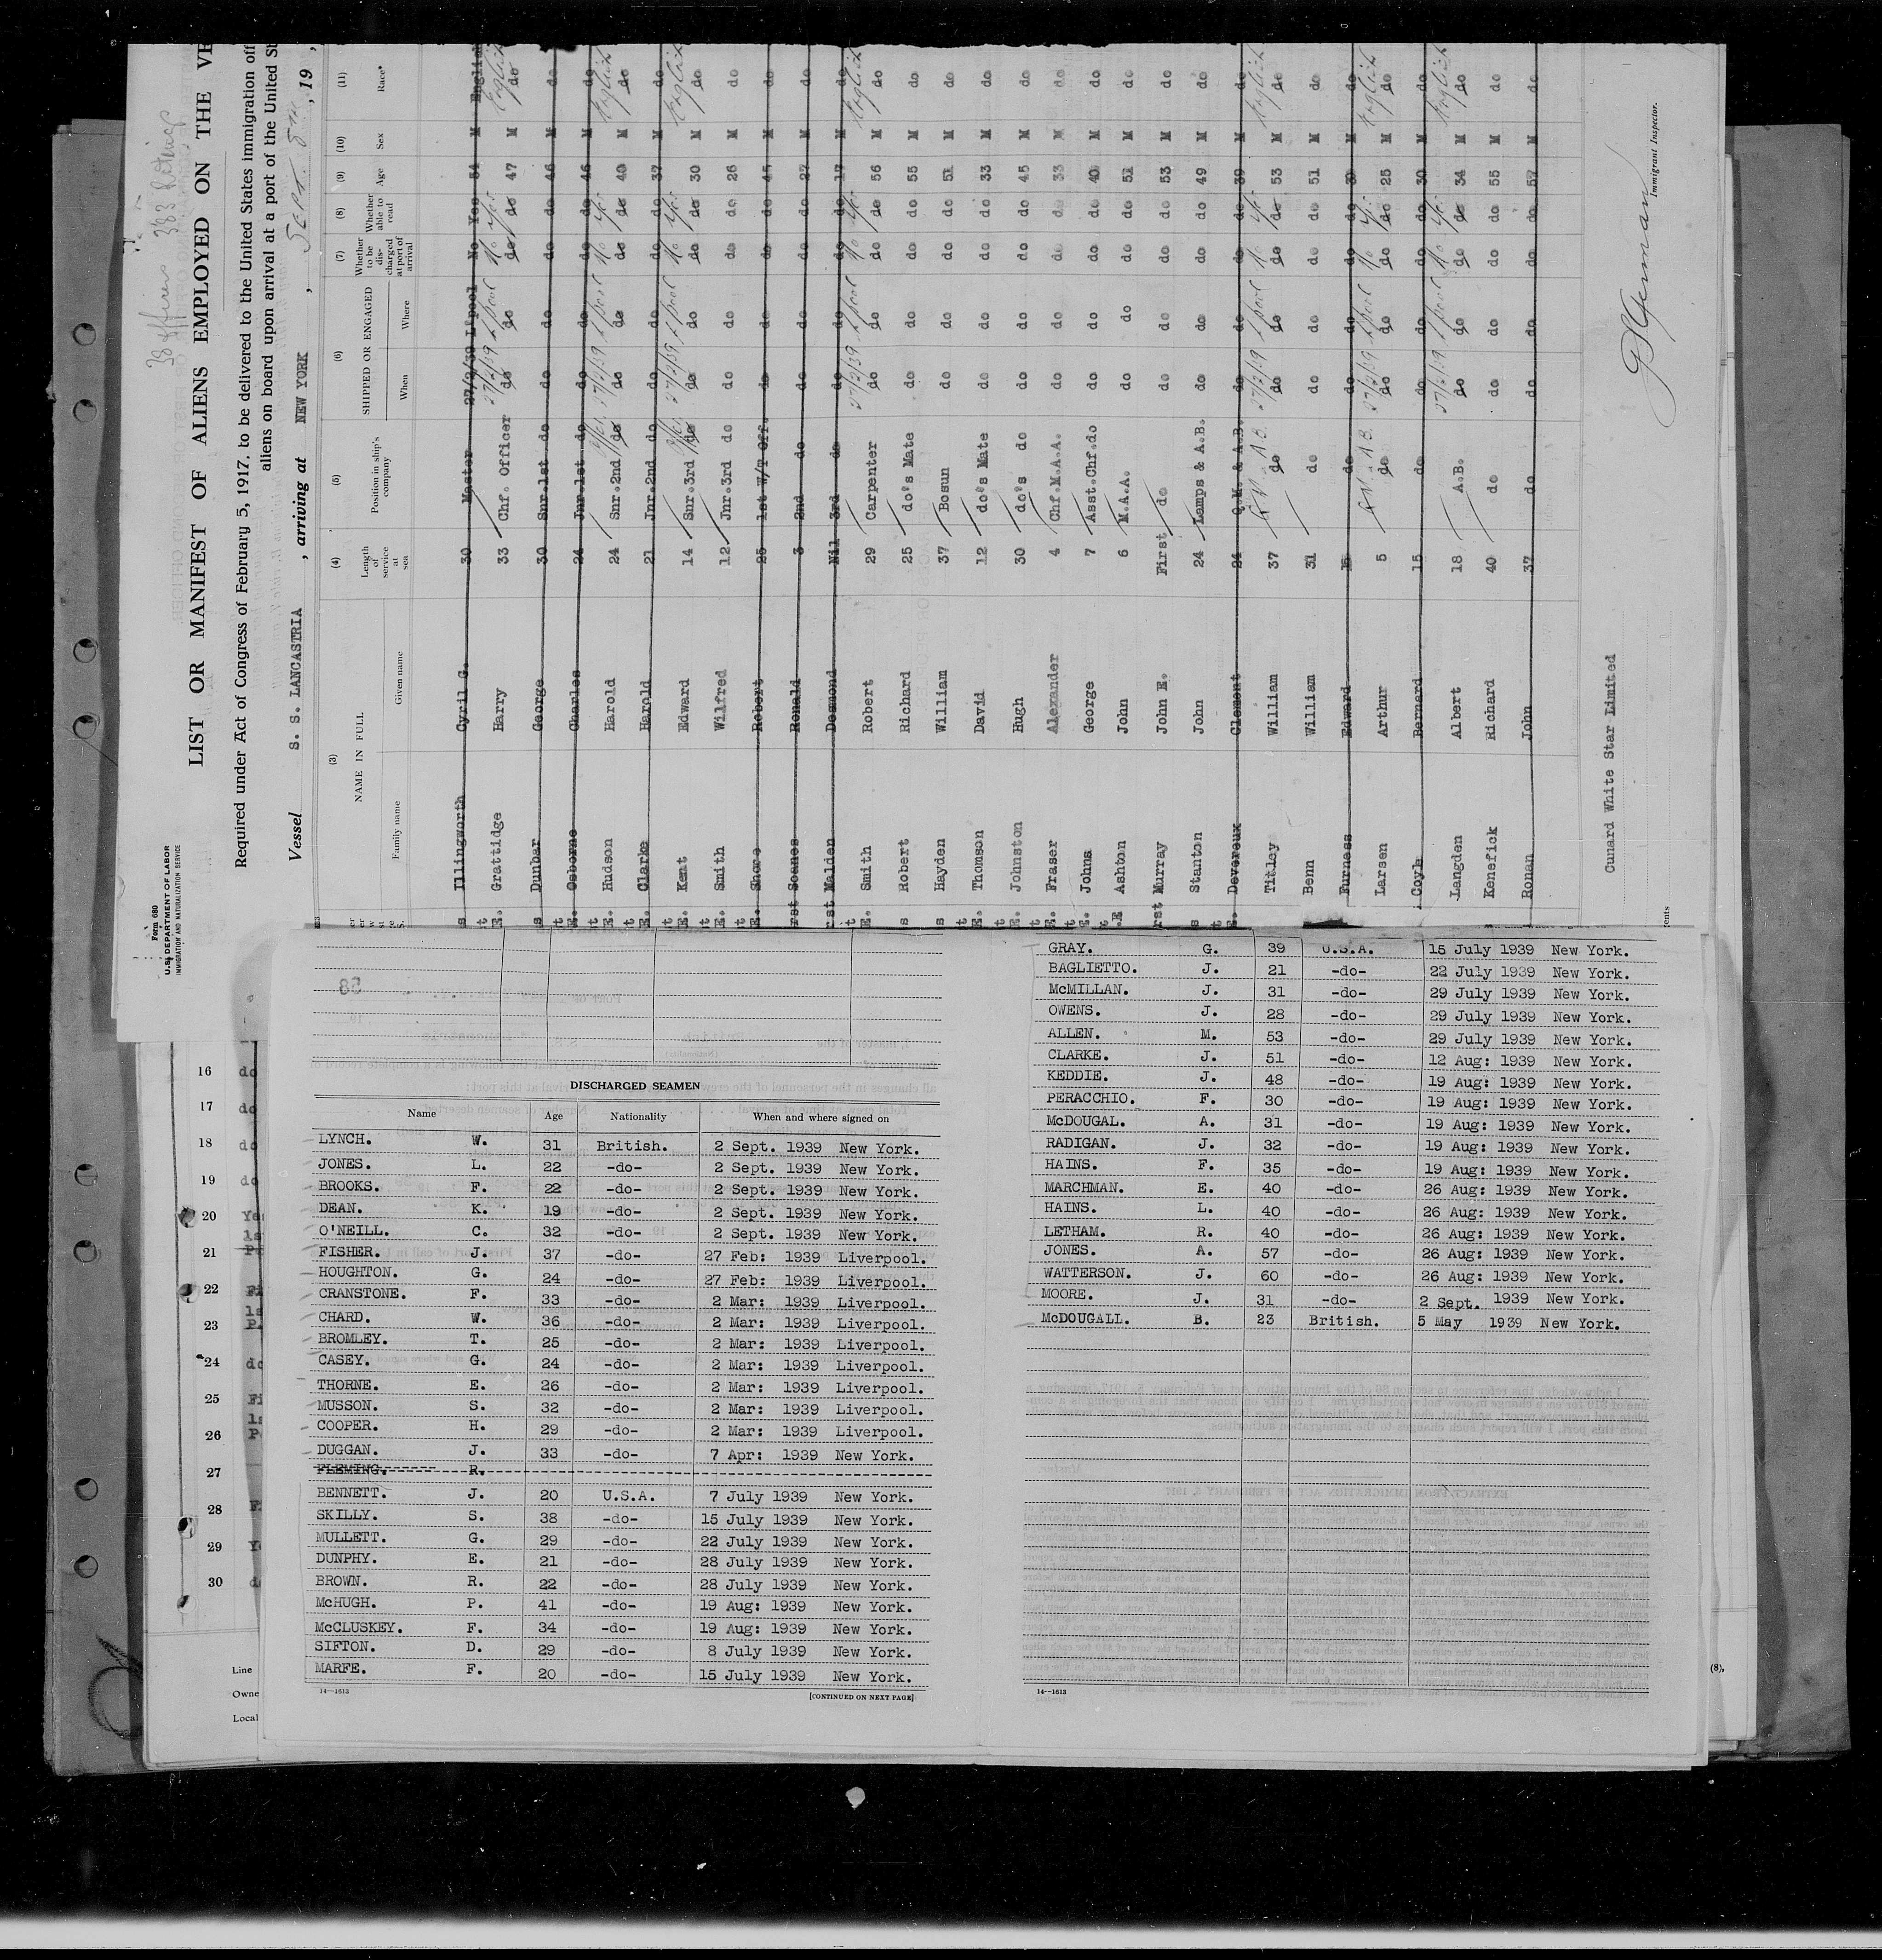 Form 680
U.S. DEPARTMENT OF LABOR
IMMIGRATION AND NATURALIZATION SERVICE
LIST OR MANIFEST OF ALIENS EMPLOYED ON THE
Required under Act of Congress of February 5, 1917, to be delivered to the United States immigration
aliens on board upon arrival at a port of the United
Vessel S. S. LANCASTRIA , arriving at NEW YORK , Sept 8th , 19
(3) (4) (5) (6) (7) (8) (9) (10) (11)
NAME IN FULL Length of service at sea Position in ship's company SHIPPED OR ENGAGED Whether to be discharged at port of arrival Whether able to read Age Sex Race*
Family name Given name When Where
Illingworth Cyril G. 30 Master 27/2/39 L'pool No Yes 54 M English
Grattidge Harry 33 Chf. Officer 27/2/39 L'pool No Yes 47 M English
Dunbar George 30 Snr.1st do do do do do 46 M do
Osborne Charles 24 Jnr.1st do do do do do 46 M do
Hudson Harold 24 Snr.2nd do 27/2/39 L'pool No Yes 40 M English
Clarke Harold 21 Jnr.2nd do do do do do 37 M do
Kent Edward 14 Snr.3rd do 27/2/39 L'pool No Yes 30 M English
Smith Wilfred 12 Jnr.3rd do do do do do 26 M do
Showe Robert 25 1st W/T Off. do do do do 45 M do
Soanes Ronald 3 2nd do do do do do 27 M do
Malden Desmond Nil 3rd do do do do do 17 M do
Smith Robert 29 Carpenter 27/2/39 L'pool do do 56 M English
Robert Richard 25 do's Mate do do do do 55 M do
Hayden William 37 Bosun do do do do 51 M do
Thomson David 12 do's Mate do do do do 33 M do
Johnston Hugh 30 do's do do do do do 45 M do
Fraser Alexander 4 Chf.M.A.A. do do do do 33 M do
Johns George 7 Asst.Chf.do do do do do 40 M do
Ashton John 6 M.A.A. do do do do 51 M do
Murray John E. First do do do do do 53 M do
Stanton John 24 Lamps & A.B. do do do do 49 M do
Devereux Clement 24 Q.M. & A.B. do do do do 39 M do
Titley William 37 do 27/2/39 L'pool No Yes 53 M English
Benn William 31 do do do do do 51 M do
Furness Edward do do do do do 30 M do
Larsen Arthur 5 do 27/2/39 L'pool No Yes 25 M English
Coyle Bernard 15 do do do do do 30 M do
Langden Albert 18 A.B. 27/2/39 L'pool No Yes 34 M English
Kenefick Richard 40 do do do do do 55 M do
Ronan John 37 do do do do do 57 M do
Cunard White Star Limited
Immigrant Inspector.
16 do
17 do
18 do
19 do
20
21
22
23
24 do
25
26
27
28
29
30
Line
Owne
Local
(8),
DISCHARGED SEAMEN
Name Age Nationality When and where signed on
LYNCH. W. 31 British. 2 Sept. 1939 New York.
JONES. L. 22 -do- 2 Sept. 1939 New York.
BROOKS. F. 22 -do- 2 Sept. 1939 New York.
DEAN. K. 19 -do- 2 Sept. 1939 New York.
O'NEILL. C. 32 -do- 2 Sept. 1939 New York.
FISHER. J. 37 -do- 27 Feb: 1939 Liverpool.
HOUGHTON. G. 24 -do- 27 Feb: 1939 Liverpool.
CRANSTONE. F. 33 -do- 2 Mar: 1939 Liverpool.
CHARD. W. 36 -do- 2 Mar: 1939 Liverpool.
BROMLEY. T. 25 -do- 2 Mar: 1939 Liverpool.
CASEY. G. 24 -do- 2 Mar: 1939 Liverpool.
THORNE. E. 26 -do- 2 Mar: 1939 Liverpool.
MUSSON. S. 32 -do- 2 Mar: 1939 Liverpool.
COOPER. H. 29 -do- 2 Mar: 1939 Liverpool.
DUGGAN. J. 33 -do- 7 Apr: 1939 New York.
FLEMING. R.
BENNETT. J. 20 U.S.A. 7 July 1939 New York.
SKILLY. S. 38 -do- 15 July 1939 New York.
MULLETT. G. 29 -do- 22 July 1939 New York.
DUNPHY. E. 21 -do- 28 July 1939 New York.
BROWN. R. 22 -do- 28 July 1939 New York.
McHUGH. P. 41 -do- 19 Aug: 1939 New York.
McCLUSKEY. F. 34 -do- 19 Aug: 1939 New York.
SIFTON. D. 29 -do- 8 July 1939 New York.
MARFE. F. 20 -do- 15 July 1939 New York.
14—1613 [CONTINUED ON NEXT PAGE]
GRAY. G. 39 U.S.A. 15 July 1939 New York.
BAGLIETTO. J. 21 -do- 22 July 1939 New York.
McMILLAN. J. 31 -do- 29 July 1939 New York.
OWENS. J. 28 -do- 29 July 1939 New York.
ALLEN. M. 53 -do- 29 July 1939 New York.
CLARKE. J. 51 -do- 12 Aug: 1939 New York.
KEDDIE. J. 48 -do- 19 Aug: 1939 New York.
PERACCHIO. F. 30 -do- 19 Aug: 1939 New York.
McDOUGAL. A. 31 -do- 19 Aug: 1939 New York.
RADIGAN. J. 32 -do- 19 Aug: 1939 New York.
HAINS. F. 35 -do- 19 Aug: 1939 New York.
MARCHMAN. E. 40 -do- 26 Aug: 1939 New York.
HAINS. L. 40 -do- 26 Aug: 1939 New York.
LETHAM. R. 40 -do- 26 Aug: 1939 New York.
JONES. A. 57 -do- 26 Aug: 1939 New York.
WATTERSON. J. 60 -do- 26 Aug: 1939 New York.
MOORE. J. 31 -do- 2 Sept. 1939 New York.
McDOUGALL. B. 23 British. 5 May 1939 New York.
14—1613